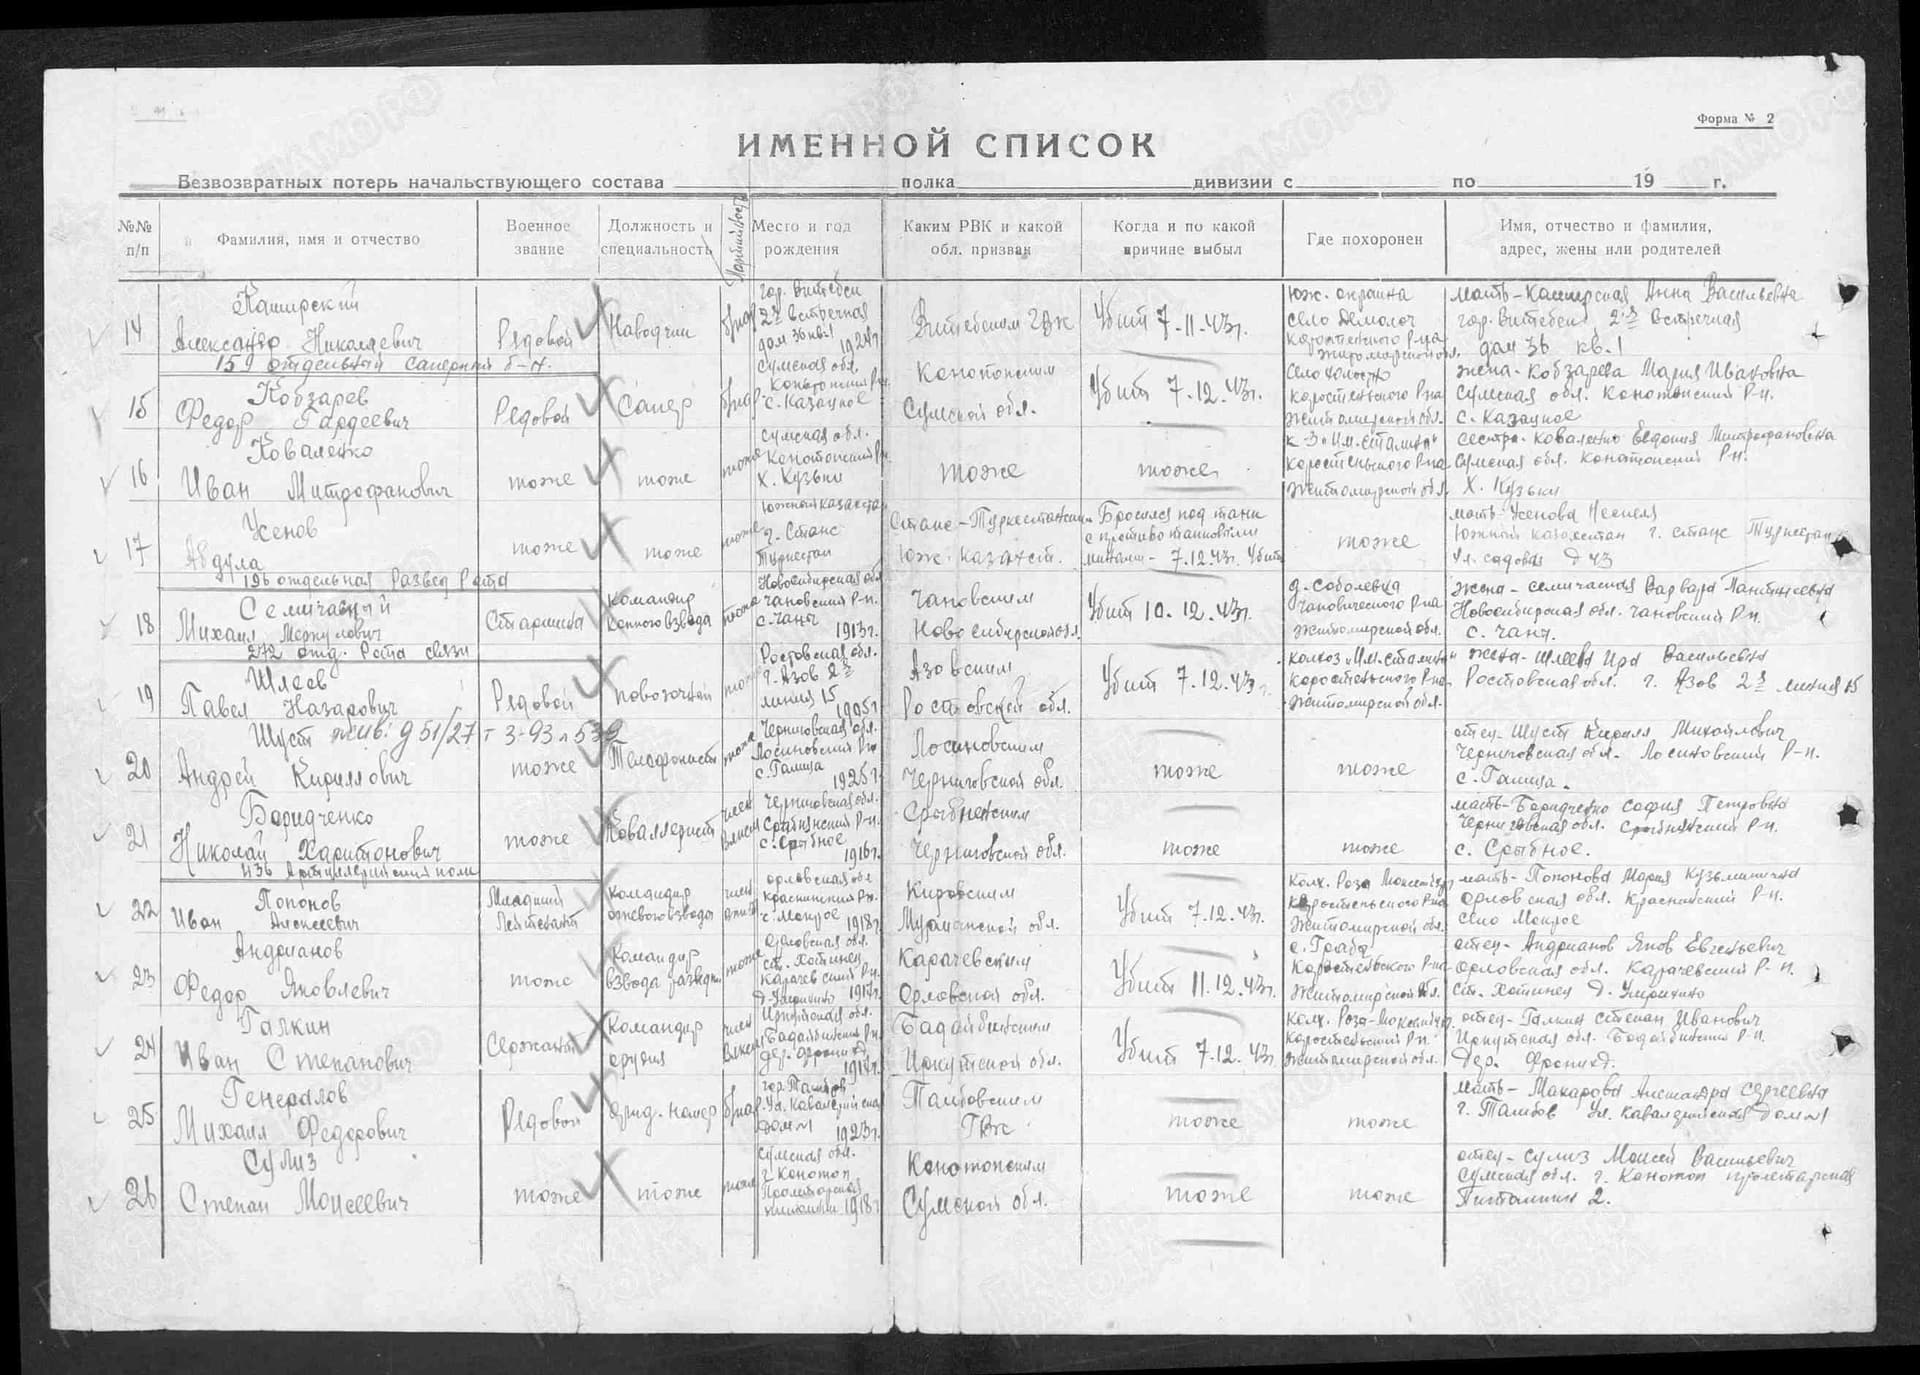 Форма № 2
ИМЕННОЙ СПИСОК
Безвозвратных потерь начальствующего состава полка дивизии с по 19 г.
№№ п/п
Фамилия, имя и отчество
Военное звание
Должность и специальность
Партийность
Место и год рождения
Каким РВК и какой обл. призван
Когда и по какой причине выбыл
Где похоронен
Имя, отчество и фамилия, адрес, жены или родителей
14
Каширский
Александр Николаевич
Редовой
Наводчик
гор. Витебск
2я встречная
дом 36 кв. 1
1924г.
Витебским ГВК
Убит 7.11.43г.
Юж. окраина
село
Коростенского Р-на
Житомирской обл.
мать - Каширская Анна Васильевна
гор. Витебск 2я встречная
дом 36 кв. 1
159 отдельный саперный б-н.
15
Кобзарев
Федор Гардеевич
Редовой
Сапер
Сумская обл.
с. Казацкое
Конотопским
Сумской обл.
Убит 7.12.43г.
село
Коростеньского Р-на
Житомирской обл.
жена - Кобзарева Мария Ивановна
Сумская обл. Конотопский Р-н.
с. Казацкое
16
Коваленко
Иван Митрофанович
тоже
тоже
тоже
Сумская обл.
Конотопский Р-н.
х. Кузьки
тоже
тоже
к-з "Им. Сталина"
Коростеньского Р-на
Житомирской обл.
сестра - Коваленко Евдокия Митрофановна
Сумская обл. Конотопский Р-н.
х. Кузьки
17
Усенов
Авдула
тоже
тоже
тоже
Южный Казахстан
г. Станс
Туркестан
Станс - Туркестанским
Юж. Казахст.
Бросился под танк
с противотанковыми
минами - 7.12.43г. Убит
тоже
мать - Усенова
Южный Казахстан г. станс Туркестан
ул. садовая д 43
196 отдельная Развед Рота
18
Семичавный
Михаил Меркулович
Старшина
Командир
конного взвода
тоже
Новосибирская обл.
Чановский Р-н.
с. Чаны
1913г.
Чановским
Новосибирской обл.
Убит 10.12.43г.
д. Соболевка
Р-на
Житомирской обл.
жена - Семичавная Варвара Пантилеевна
Новосибирская обл. Чановский Р-н.
с. Чаны.
272 отд. Рота связи
19
Шлеев
Павел Назарович
Редовой
повозочный
тоже
Ростовская обл.
г. Азов 2я
линия 15
1905г.
Азовским
Ростовской обл.
Убит 7.12.43г.
Колхоз "Им. Сталина"
Коростеньского Р-на
Житомирской обл.
жена - Шлеева Ира Васильевна
Ростовская обл. г. Азов 2я линия 15
20
Шуст жив: д 51/27 т 3-93 л 539
Андрей Кириллович
тоже
Телефонист
тоже
Черниговская обл.
Лосиновский Р-н
с. Галица
1925г.
Лосиновским
Черниговской обл.
тоже
тоже
отец - Шуст Кирилл Михайлович
Черниговская обл. Лосиновский Р-н.
с. Галица.
21
Баридченко
Николай Харитонович
тоже
Ковалерист
член
Черниговская обл.
Срыбнянский Р-н.
с. Срыбное
1916г.
Срыбненским
Черниговской обл.
тоже
тоже
мать - Баридченко София Петровна
Черниговская обл. Срыбнянский Р-н.
с. Срыбное.
436 Артиллерийский полк
22
Попонов
Иван Алексеевич
Младший
Лейтенант
Командир
огневого взвода
член
Орловская обл
Краснинский Р-н.
с. Мокрое
1918г.
Кировским
Мурманской обл.
Убит 7.12.43г.
Колх. Роза
Коростеньского Р-на
Житомирской обл.
мать - Попонова Мария Кузьминична
Орловская обл. Краснинский Р-н.
село Мокрое
23
Андрианов
Федор Яковлевич
тоже
Командир
взвода разведки
тоже
Орловская обл.
ст. Хотинец
Карачевский Р-н.
1917г.
Карачевским
Орловской обл.
Убит 11.12.43г.
с. Граба
Коростеньского Р-на
Житомирской обл.
отец - Андрианов Яков Евгеньевич
Орловская обл. Карачевский Р-н.
ст. Хотинец д.
24
Галкин
Иван Степанович
Сержант
Командир
орудия
член
ВЛКСМ
Иркутская обл.
Бадайбинский Р-н.
1917г.
Бадайбинским
Иркутской обл.
Убит 7.12.43г.
Колх. Роза-
Коростеньский Р-н.
Житомирской обл.
отец - Галкин Степан Иванович
Иркутская обл. Бадайбинский Р-н.
дер.
25
Генералов
Михаил Федорович
Редовой
оруд. номер
гор. Тамбов
ул. Кавалерийская
дом №1
1923г.
Тамбовским
ГВК
тоже
тоже
мать - Макарова Александра Сергеевна
г. Тамбов ул. Кавалерийская дом №1
26
Сулиз
Степан Моисеевич
тоже
тоже
тоже
Сумская обл.
г. Конотоп
1918г.
Конотопским
Сумской обл.
тоже
тоже
отец - Сулиз Моисей Васильевич
Сумская обл. г. Конотоп пролетарская
2.